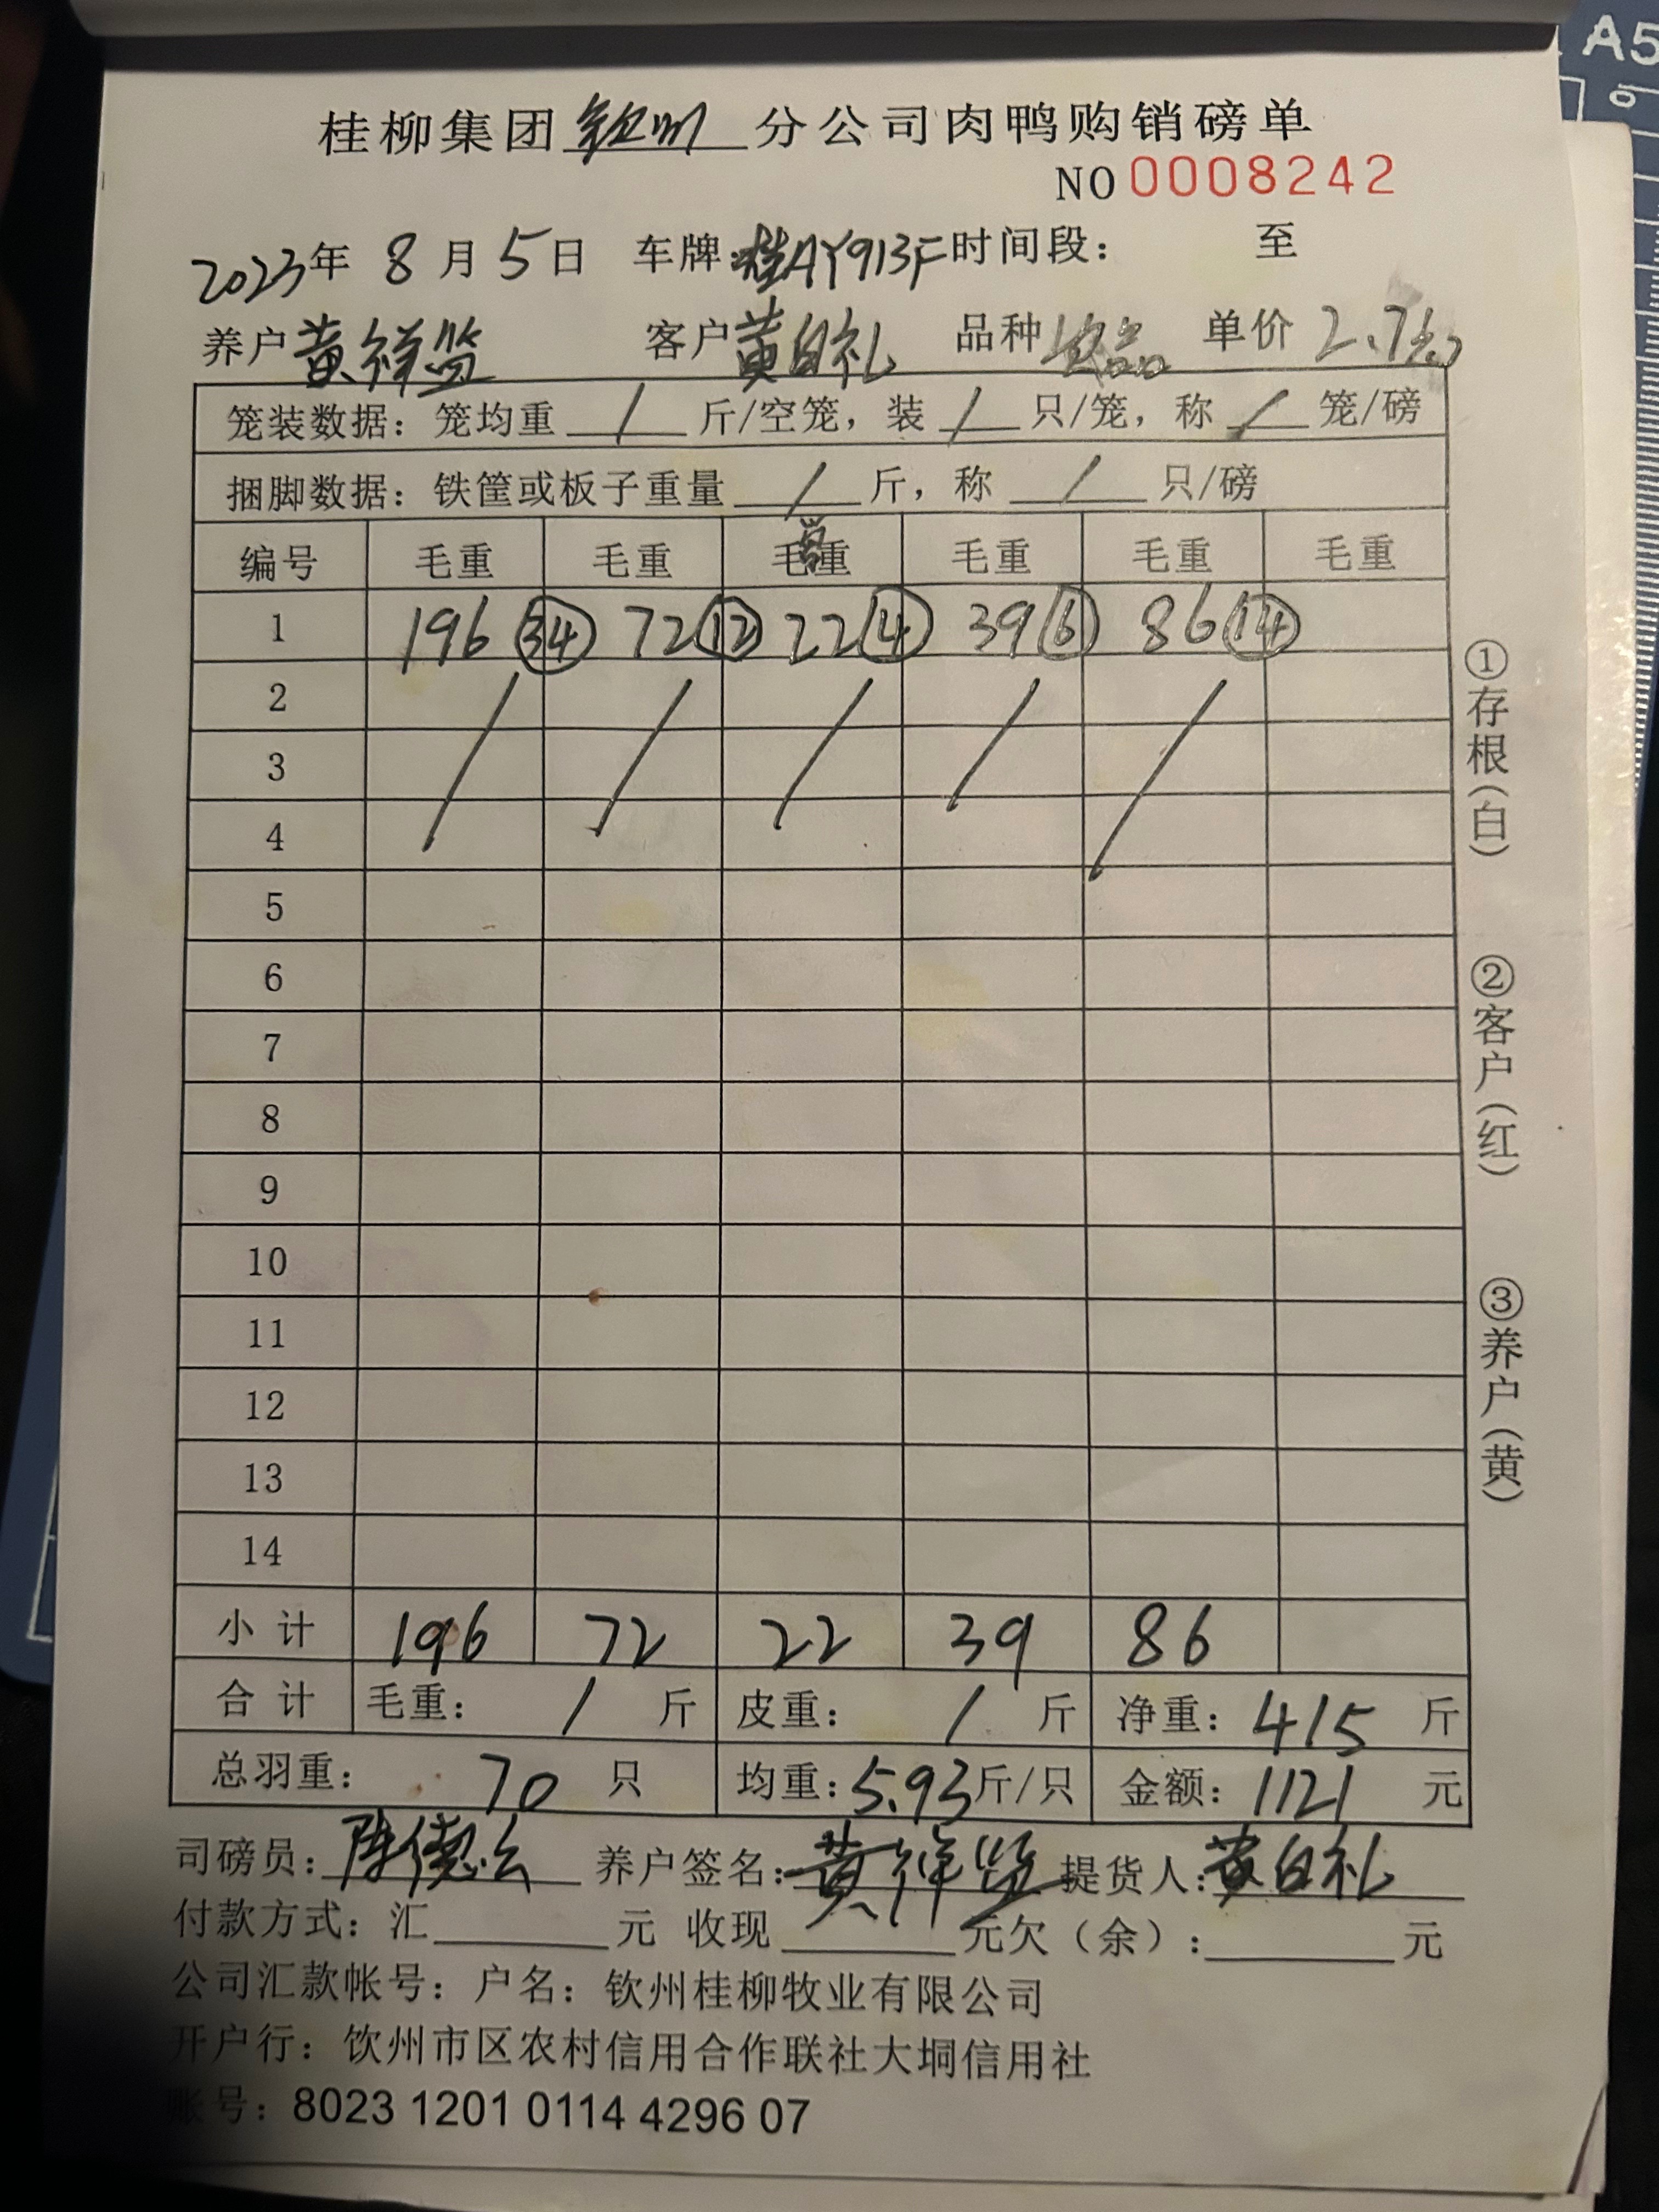 A5
桂柳集团钦州分公司肉鸭购销磅单
NO 0008242
2023年 8月5日 车牌:桂AY913F 时间段: 至
养户 黄祥监 客户 黄自礼 品种 次品 单价 2.7
笼装数据: 笼均重 / 斤/空笼, 装 / 只/笼, 称 / 笼/磅
捆脚数据: 铁筐或板子重量 / 斤, 称 / 只/磅
编号 毛重 毛重 毛重 毛重 毛重 毛重
1 196 ㉞ 72 ⑫ 22 ④ 39 ⑥ 86 ⑭
2 / / / / /
3
4
5
6
7
8
9
10
11
12
13
14
小计 196 72 22 39 86
合计 毛重: / 斤 皮重: / 斤 净重: 415 斤
总羽重: 70 只 均重: 5.93斤/只 金额: 1121 元
司磅员: 陈德云 养户签名: 黄祥监 提货人: 黄自礼
付款方式: 汇 元 收现 元欠(余): 元
公司汇款帐号: 户名: 钦州桂柳牧业有限公司
开户行: 饮州市区农村信用合作联社大垌信用社
账号: 8023 1201 0114 4296 07
①存根(白)
②客户(红)
③养户(黄)